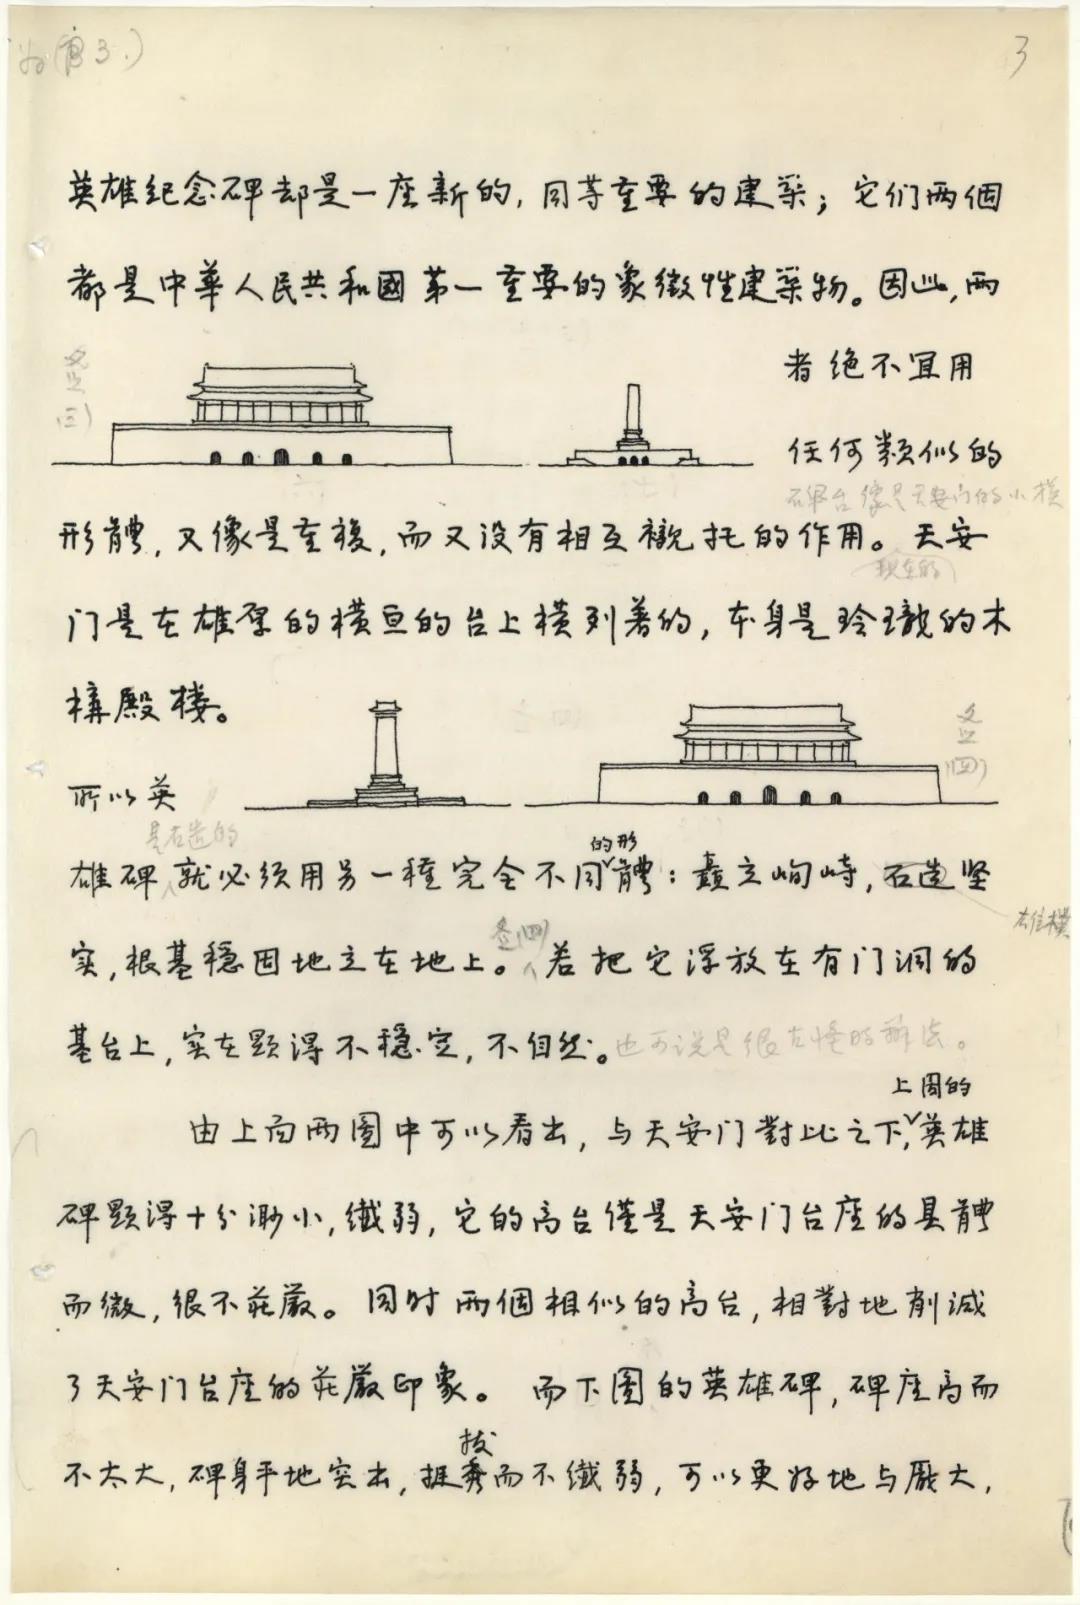 3
英雄纪念碑却是一座新的，同等重要的建築；它们两個
都是中華人民共和國第一重要的象徵性建築物。因此，两
者绝不宜用
任何類似的
碑台像是天安门的小模
形體，又像是重複，而又没有相互襯托的作用。天安
现在的
门是在雄厚的横亘的台上横列着的，本身是玲瓏的木
構殿楼。
所以英
是石造的
的形
雄碑就必须用另一種完全不同體：矗立峋峙，石造坚
雄樸
实，根基穩固地立在地上。若把它浮放在有门洞的
基台上，实在顕得不稳定，不自然。也可说是很古怪的辦法。
上圖的
由上面两圖中可以看出，与天安门對比之下，英雄
碑顕得十分渺小，纖弱，它的高台僅是天安门台座的具體
而微，很不莊嚴。同时两個相似的高台，相對地削減
了天安门台座的莊嚴印象。而下圖的英雄碑，碑座高而
拔
不太大，碑身平地突出，挺秀而不纖弱，可以更好地与厖大，